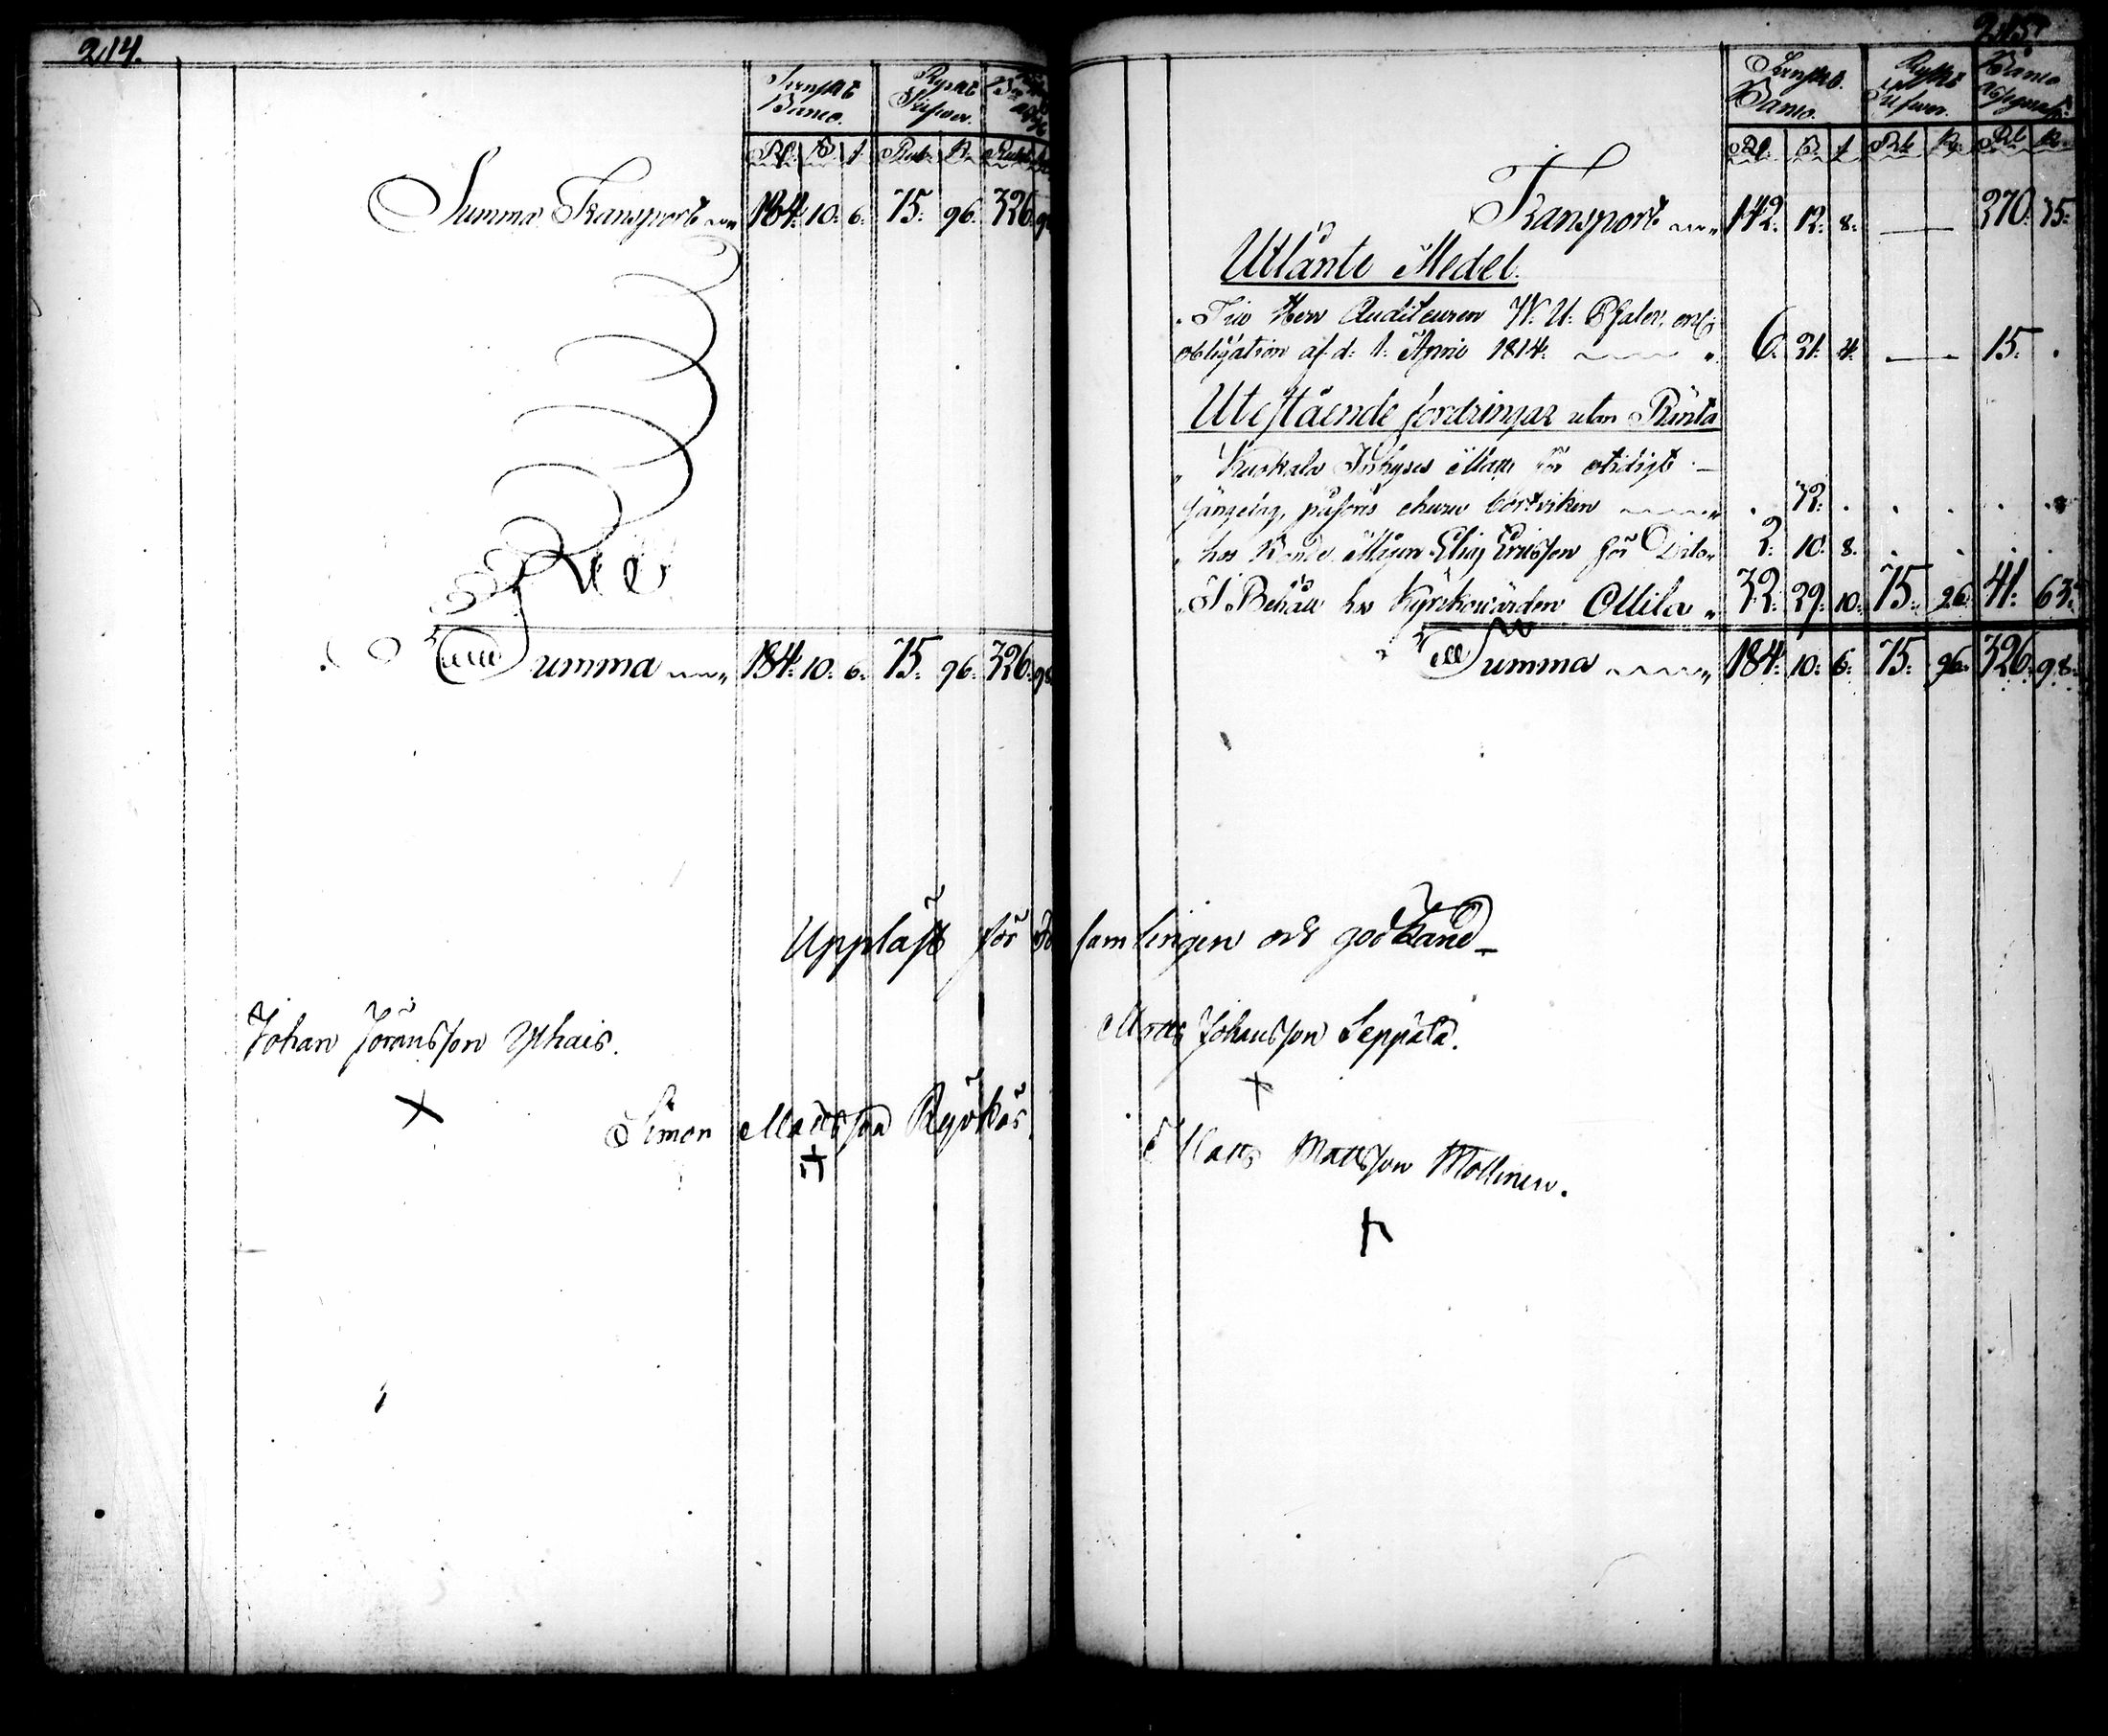 214.
Svenskt Banco. Ryskt Silfver.
Rd. S. r. Rub. K. Rub.
Summa Transport 184. 10. 6. 75. 96. 326. 98
Summa 184. 10. 6. 75. 96. 326. 98
Johan Jöransson Yhais.
Simon Mattsson Ryökäs
215
Svenskt Banco. Ryskt Silfver. Banco Assignat.
Rd. S. r. Rb. K. Rb. K.
Transport 142. 12. 8. — 270. 35.
Utlånte Medel.
Herr Auditeuren W. U. Pfaler, enl.
obligation af d. 1. April 1814. 6. 21. 4. — 15.
Utestående fordringar utan Ränta
för otidigt
sängelag, 32.
hos Bonde Elias Ericsson för Dito 2. 10. 8.
I Behåll hos Kyrkovärden Ollila 32. 29. 10. 75. 96. 41. 63.
Summa 184. 10. 6. 75. 96. 326. 98.
Uppläst för Församlingen och godkänd
Matts Johansson Seppälä.
Matts Mattsson Mollinen.